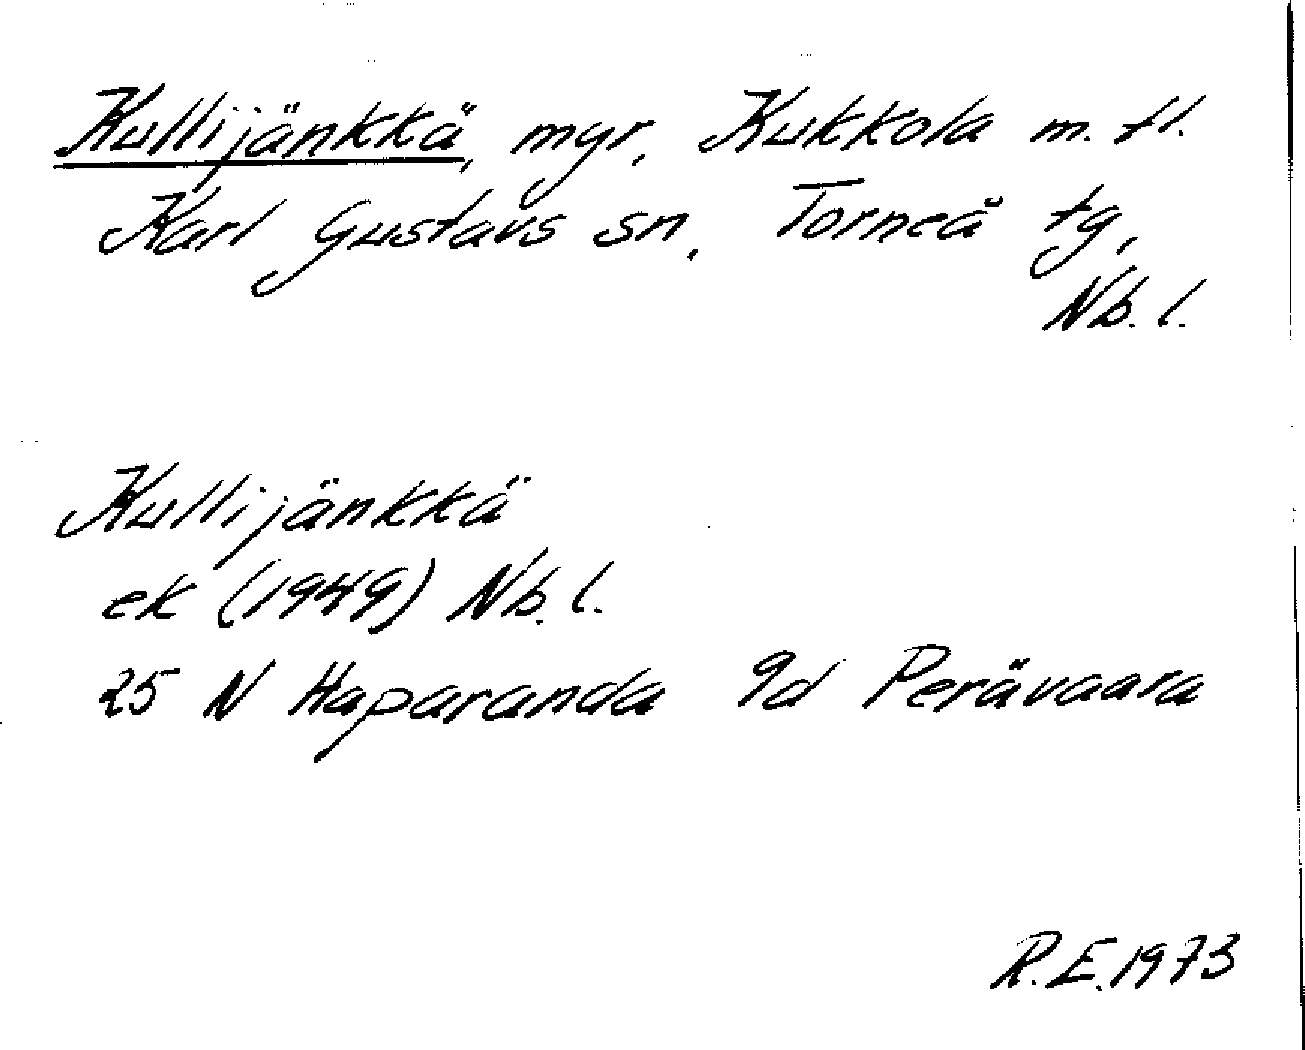 Kullijänkkä, myr, Kukkola m. fl.
Karl Gustavs sn, Torneå tg,
Nb. l.
Kullijänkkä
ek (1949) Nb. l.
25 N Haparanda 9d Perävaara
R.E. 1973